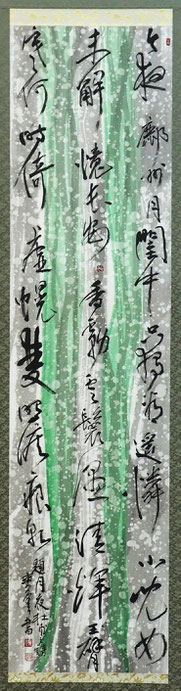 今夜鄜州月閨中只獨看遙憐小兒女
未解憶長安香霧雲鬟濕清輝玉臂
寒何時倚虛幌雙照淚痕乾
題月夜杜甫